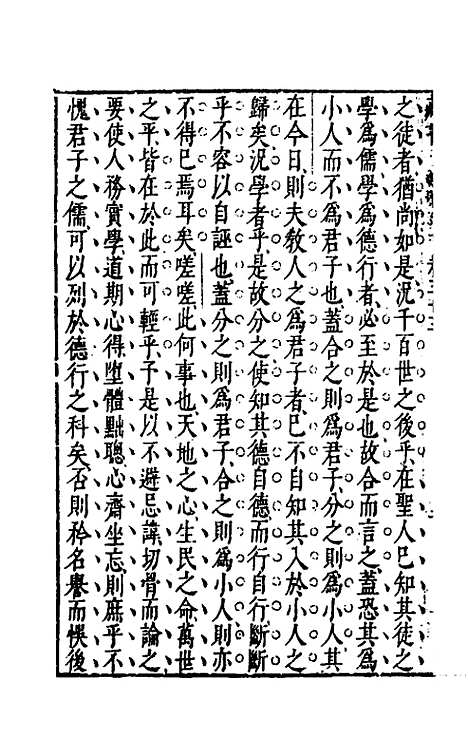 之徒者猶尚如是況千百世之後乎在聖人已知其徒之
學爲儒學爲德行者必至於是也故合而言之蓋恐其爲
小人而不爲君子也蓋合之則爲君子分之則爲小人其
在今日則夫教人之爲君子者已不自知其入於小人之
歸矣況學者乎是故分之使知其德自德而行自行斷斷
乎不容以自誣也蓋分之則爲君子合之則爲小人則亦
不得已焉耳矣嗟嗟此何事也天地之心生民之命萬世
之平皆在於此而可輕乎予是以不避忌諱切骨而論之
要使人務實學道期心得墮體黜聰心齋坐忘則庶乎不
愧君子之儒可以列於德行之科矣否則矜名譽而悞後